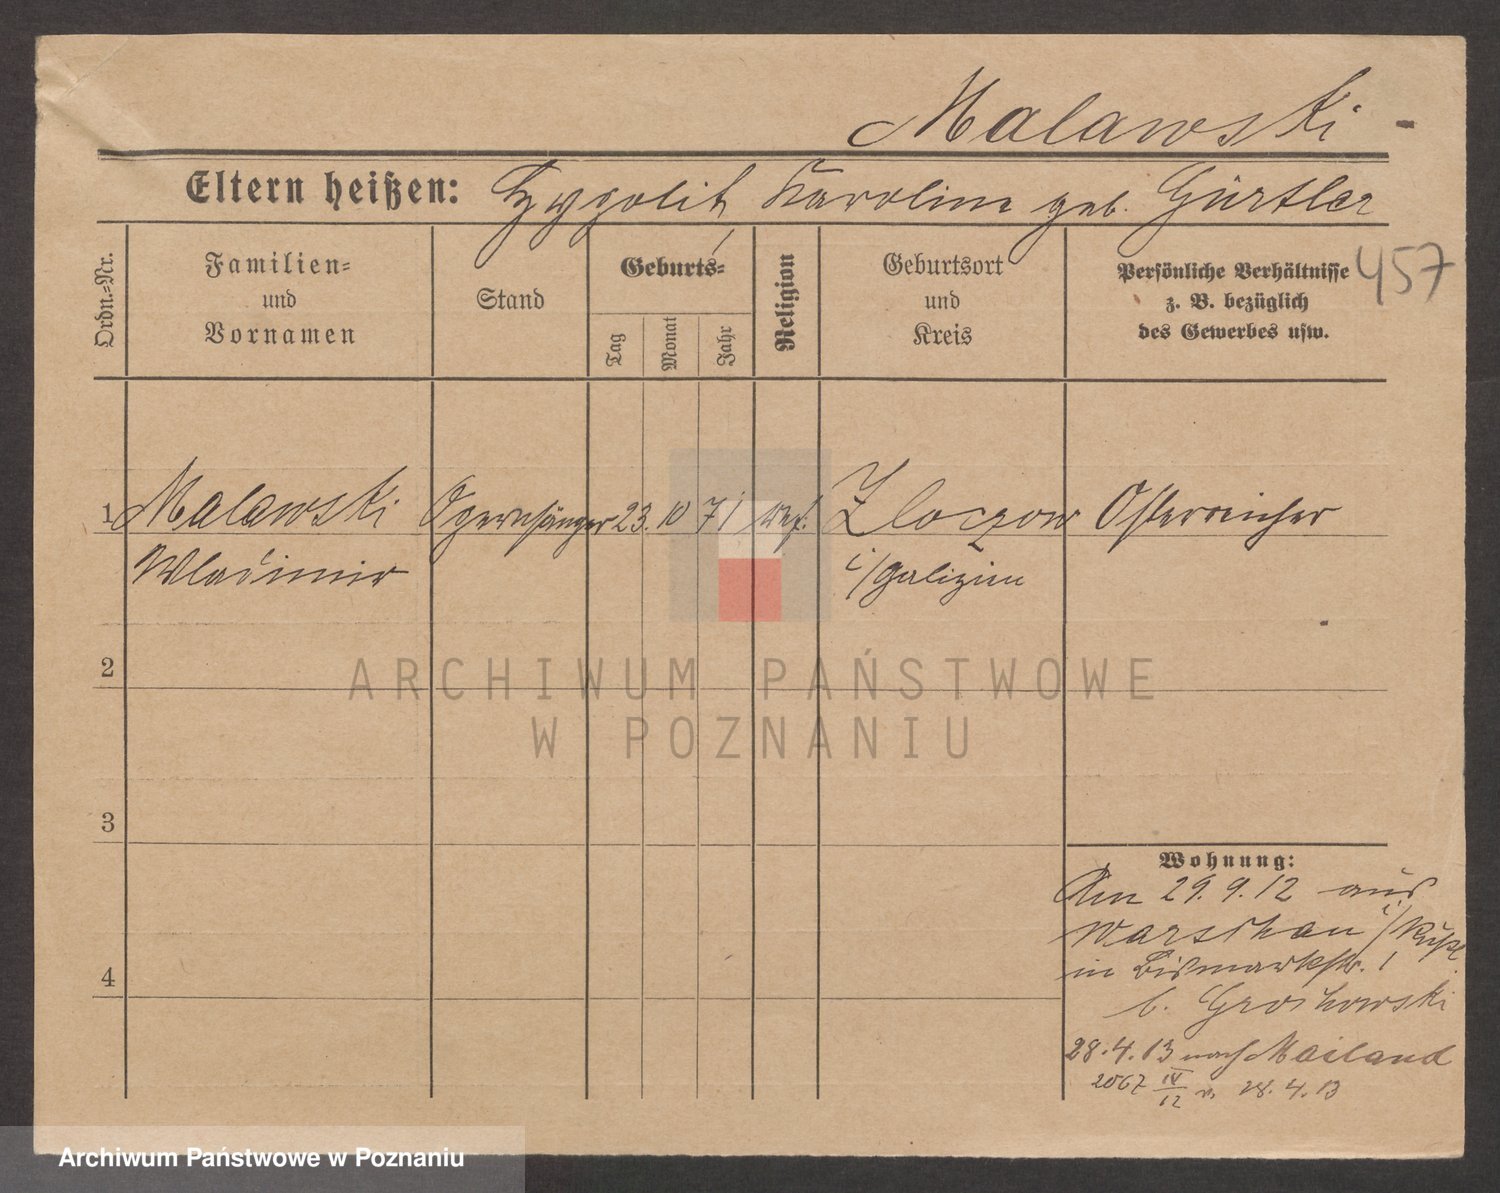 Malawski -
Eltern heißen: Hypolit, Karoline geb. Gürtler
457
Ordn.-Nr.
Familien-
und
Vornamen
Stand
Geburts-
Tag
Monat
Jahr
Religion
Geburtsort
und
Kreis
Persönliche Verhältnisse
z. B. bezüglich
des Gewerbes usw.
1 Malawski Opernsänger 23. 10 71 Zloczow Österreicher
Wladimir i/Galizien
2
3
4
Wohnung:
Am 29.9.12 aus
Warschau i/Rußl.
in Bismarckstr. 1
b. Grochowski
28.4.13 nach Mailand
2067 IV/12 v. 28.4.13
ARCHIWUM PAŃSTWOWE
W POZNANIU
Archiwum Państwowe w Poznaniu